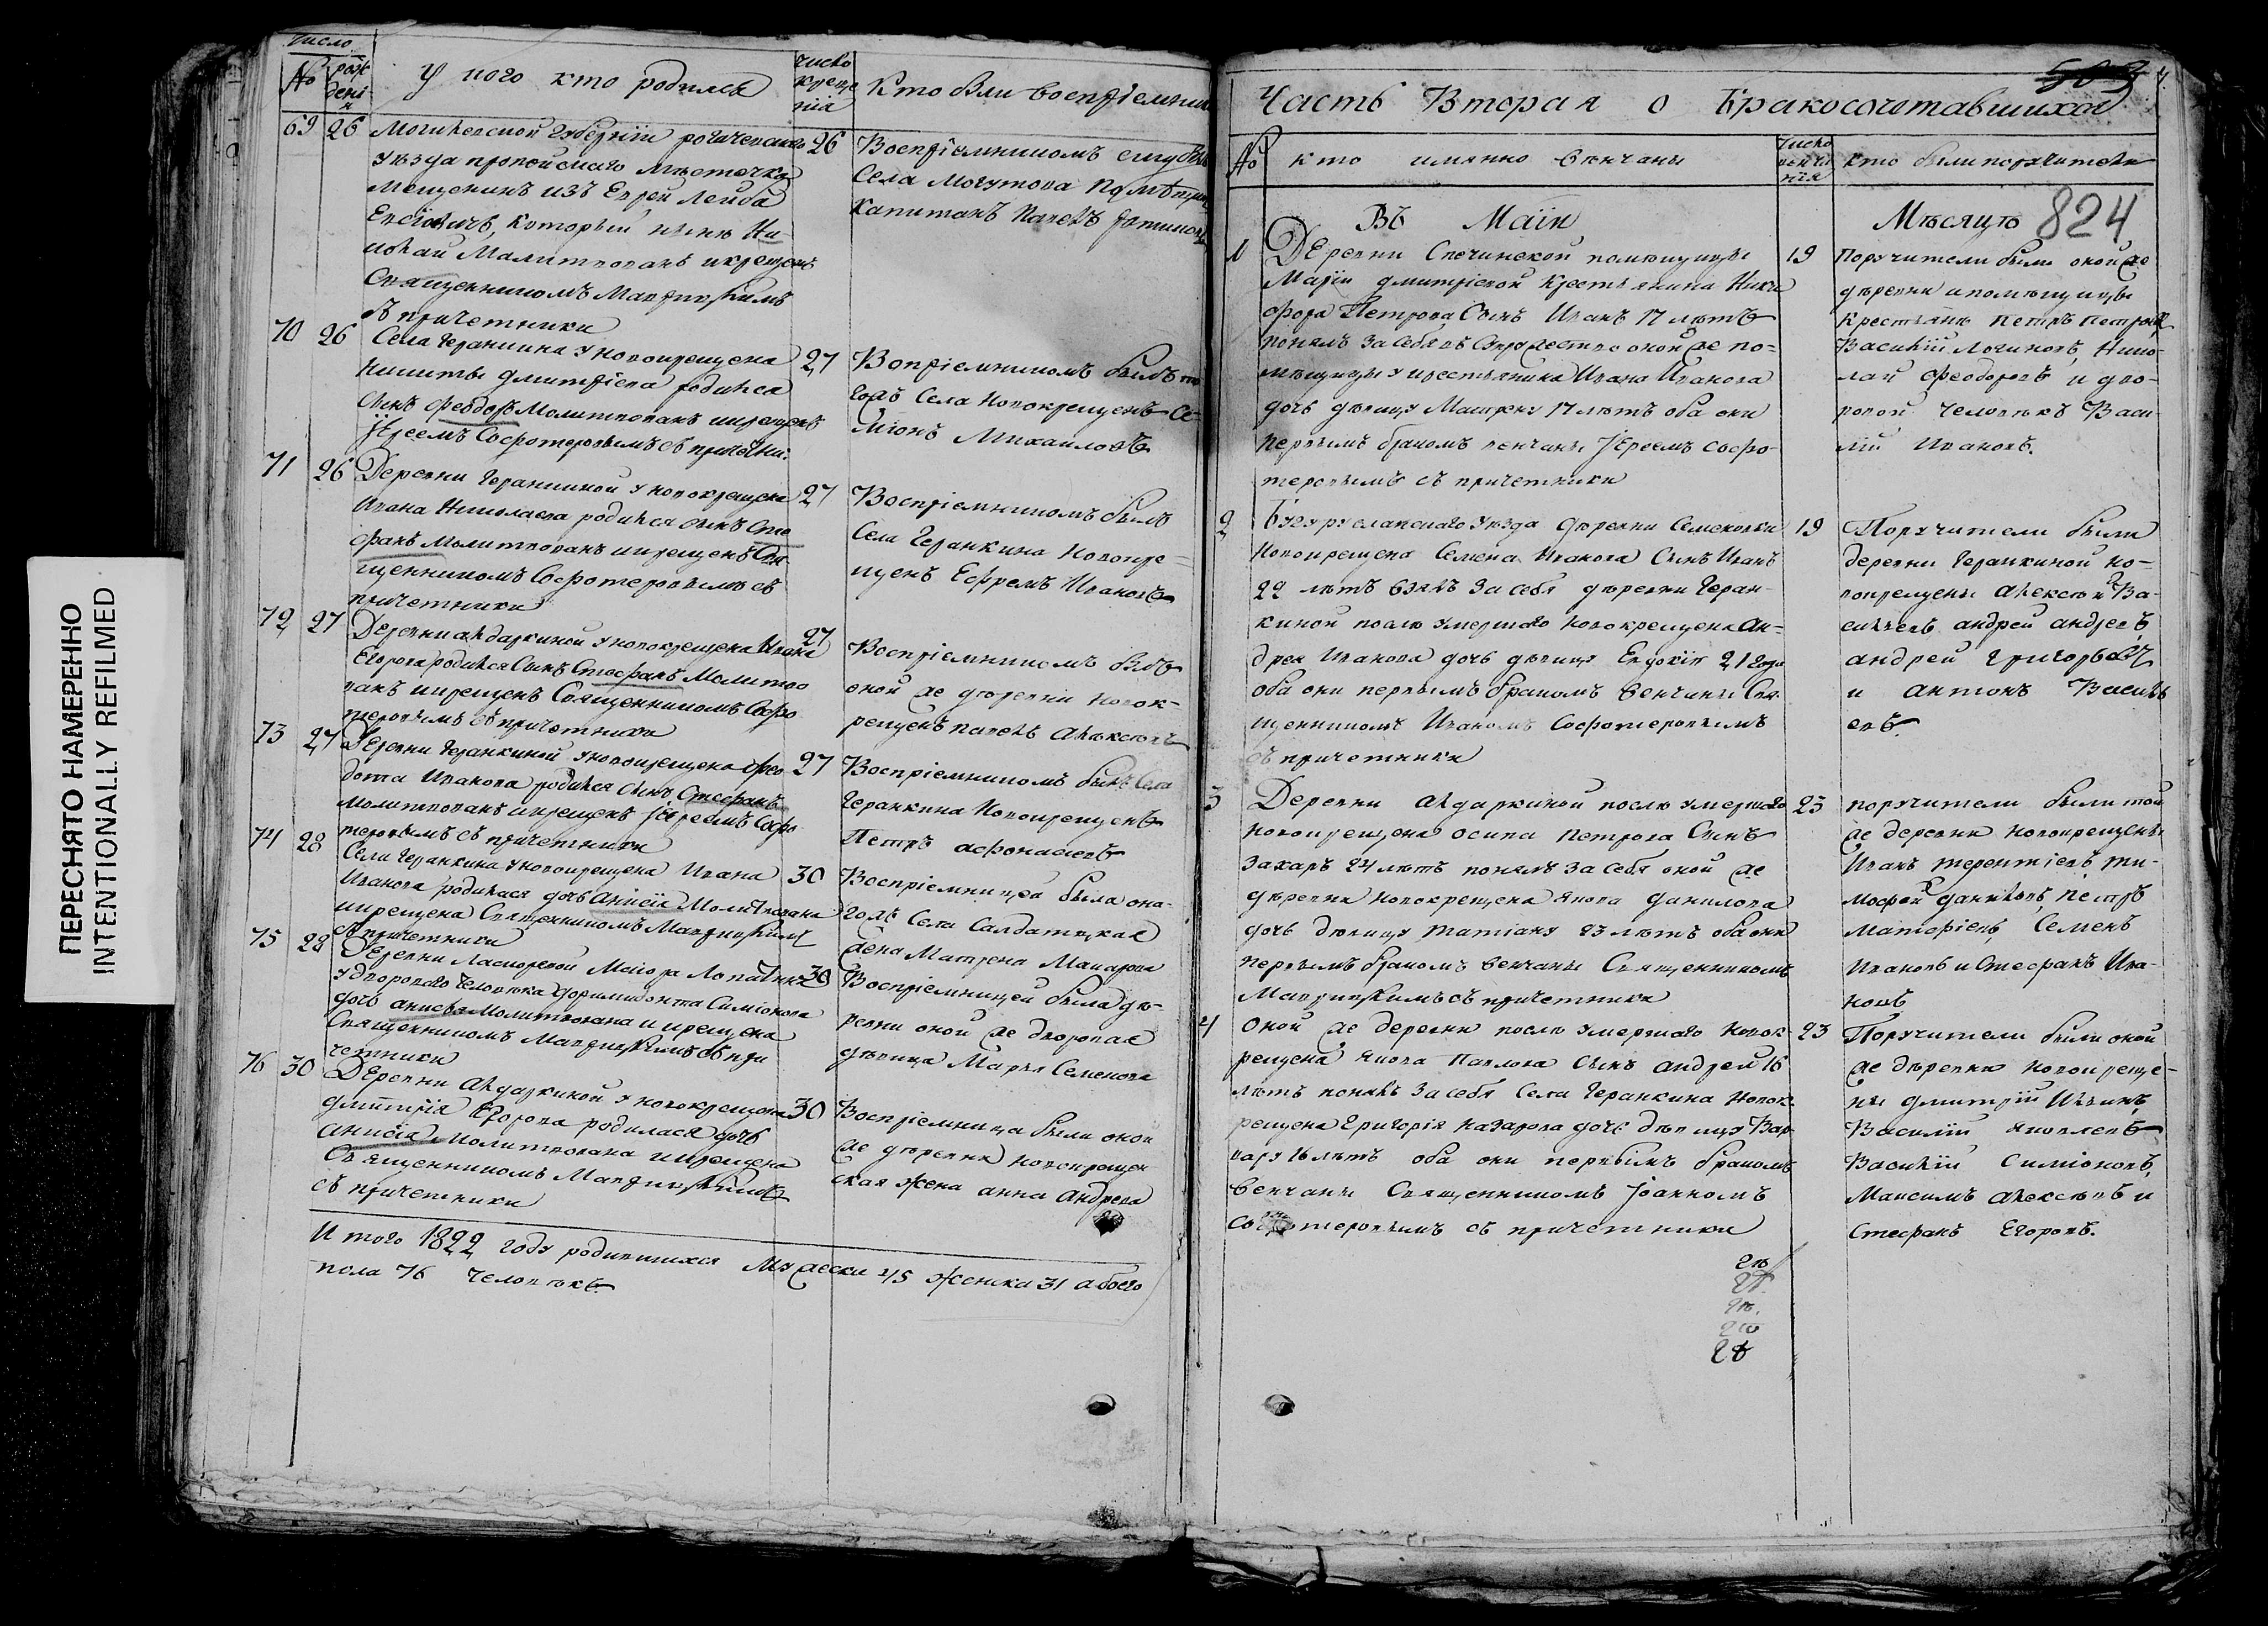 ПЕРЕСНЯТО НАМЕРЕННО
INTENTIONALLY REFILMED
Число
№ рождения У кого кто родился число крещения Кто были восприемники
69 26
Могилевской губернїи рогачевскаго
уѣзда пропойскаго мѣстечка
мещенинъ изъ Еврей Лейба
который нынѣ Ни-
молитвованъ и крещенъ
Священникомъ
съ причетники
26
Воспрїемникомъ
Села Могутова
Капитанъ Павелъ
70 26
Села Геранкина у новокрещена
Никиты Дмитрїева родился
сынъ Феодоръ Молитвованъ и крещенъ
Їереемъ Софотеровымъ съ причетни:
27
Вопрїемникомъ былъ
Села Новокрещенъ Се-
мїонъ Михаиловъ
71 26
Деревни Геранкиной у новокрещена
Ивана Николаева родился сынъ Сте
фанъ молитвованъ и крещенъ Свя
щенникомъ Софотеровымъ съ
причетники
27
Воспрїемникомъ былъ
Села Геранкина Новокре-
щенъ Ефремъ Ивановъ
72 27
Деревни Алдаркиной у новокрещена Ивана
Егорова родился Сынъ Стефанъ Молитво
ванъ и крещенъ Священникомъ Софо
теровымъ съ причетники
27
Воспрїемникомъ былъ
оной же деревни новок-
рещенъ Павелъ Алексѣевъ
73 27
Деревни Геранкиной у новокрещена Фео
дота Иванова родился сынъ Стефанъ
молитвованъ и крещенъ Їереемъ Софо
теровымъ съ причетники
27
Воспрїемникомъ былъ Села
Геранкина Новокрещенъ
Петръ Афонасьевъ
74 28
Села Геранкина у новокрещена Ивана
Иванова родилася дочь Анисїя Молитвована
и крещена Священникомъ
съ причетники
30
Воспрїемница была она-
Села Салдатская
жена Матрена Макарова
75 28
Деревни Маїора Лопатина
у двороваго человѣка Симїонова
дочь Анисья Молитвована и крещена
Священникомъ съ при
четники
30
Воспрїемницей была де-
ревни оной же дворовая
дѣвица Марья Семенова
76 30
Деревни Алдаркиной у новокрещена
Дмитрїя Егорова родилася дочь
Анисїя Молитвована и крещена
Священникомъ
съ причетники
30
Воспрїемница были оной
же деревни новокрещен
ская жена Анна Андреева
И того 1822 году родившихся Мужеска 45 женска 31 а обоего
пола 76 человѣкъ
503
Часть Вторая о Бракосочетавшихся
№ кто имянно венчаны число венчания кто были поручители
Въ Маїи Мѣсяцѣ 824
1
Деревни помѣщицы
Марїи Дмитрїевой Крестьянина Ники
фора Петрова Сынъ Иванъ 17 лѣтъ
понялъ за себя въ Супружество оной же по-
мѣщицы у крестьянина Ивана Иванова
дочь дѣвицу 17 лѣтъ оба они
первымъ бракомъ венчаны Їереемъ Софо-
теровымъ съ причетники
19
Поручители были оной же
деревни и помѣщицы
Крестьяне Петръ Петровъ
Василїй Логиновъ, Нико-
лай Феодоровъ и дво-
ровой человѣкъ Васи-
лїй Ивановъ.
2
Бузурусланскаго уѣзда деревни Семеновки
Новокрещена Семена Иванова Сынъ Иванъ
22 лѣтъ взялъ за себя деревни Геран-
киной послѣ умершаго новокрещена Ан-
дрея Иванова дочь дѣвицу Евдокїю 21 года
оба они первымъ бракомъ венчаны Свя-
щенникомъ Иваномъ Софотеровымъ
съ причетники
19
Поручители были
деревни Геранкиной но-
вокрещены Алексѣй Ва-
сильевъ андрей андреевъ,
андрей григорьевъ
и антонъ Василь
евъ.
3
Деревни Алдаркиной послѣ умершаго
новокрещена Осипа Петрова Сынъ
Захаръ 24 лѣтъ понялъ за себя оной же
деревни новокрещена Якова Данилова
дочь дѣвицу Татїану 23 лѣтъ оба они
первымъ бракомъ венчаны Священникомъ
съ причетники
23
поручители были той
же деревни новокрещены
Иванъ Терентїевъ, Ти-
мофей Даниловъ, Петръ
Матфїевъ, Семенъ
Ивановъ и Стефанъ Ива-
новъ
4
Оной же деревни послѣ умершаго новок
рещена Якова Павлова сынъ Андрей 16
лѣтъ понялъ за себя Села Геранкина Новок-
рещена Григорїя Назарова дочь дѣвицу Вар-
вару 16 лѣтъ оба они первымъ бракомъ
венчаны Священникомъ Їоанномъ
Софотеровымъ съ причетники
23
Поручители были оной
же деревни новокреще-
ны Дмитрїй Ильинъ,
Василїй Яковлевъ
Василїй Симїоновъ,
Максимъ Алексѣевъ и
Стефанъ Егоровъ.